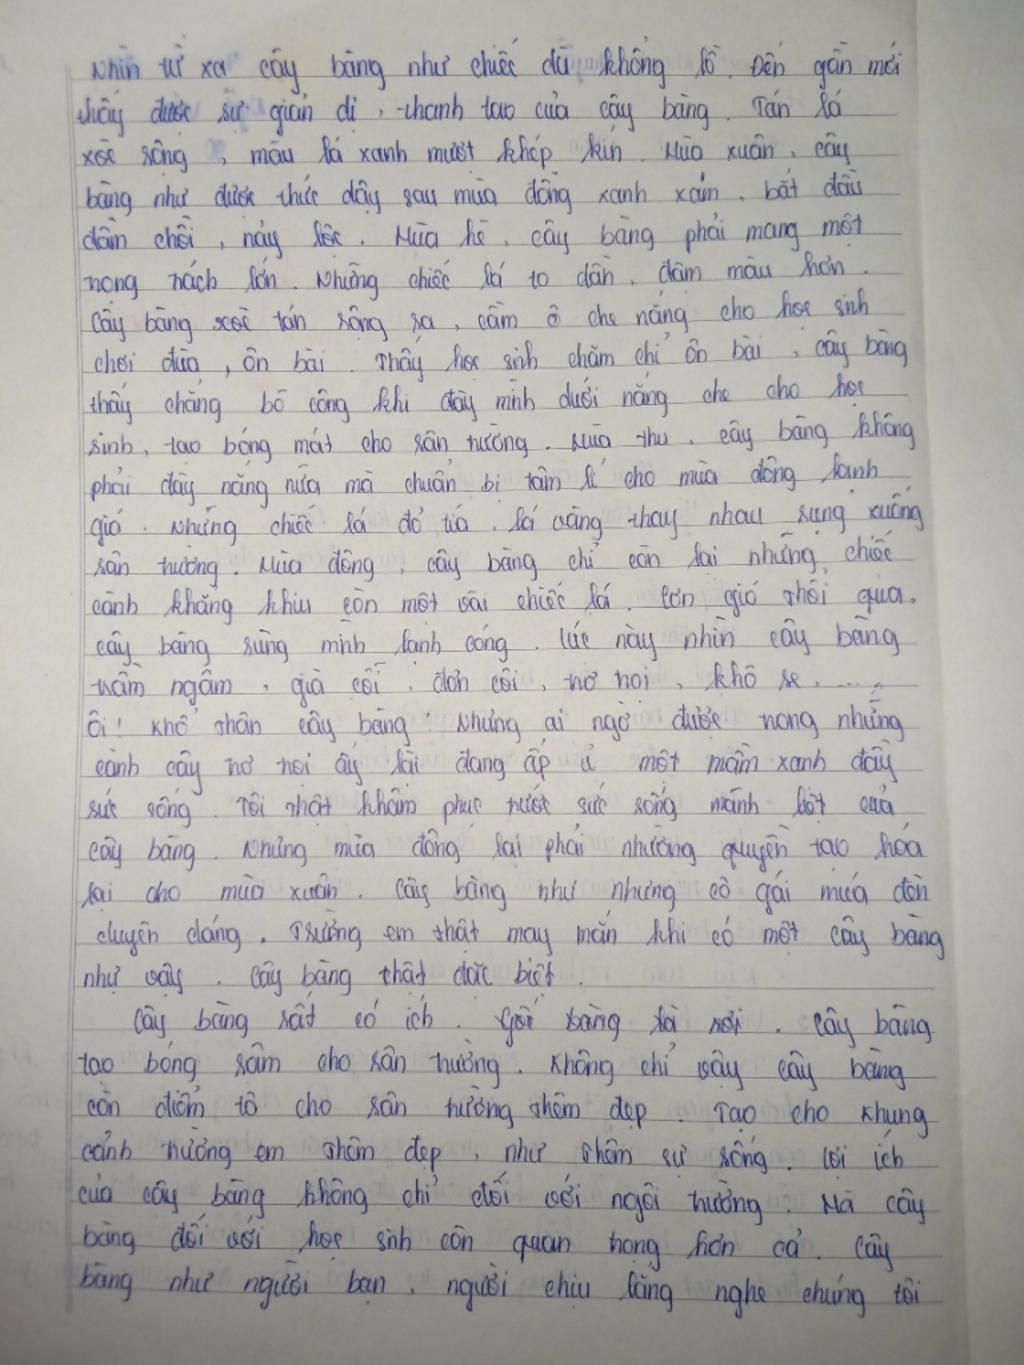 Nhìn từ xa cây bàng như chiếc dù khổng lồ. Đến gần mới
thấy được sự giản dị, thanh tao của cây bàng. Tán lá
xòe rộng, màu lá xanh mướt khép kín. Mùa xuân, cây
bàng như được thức dậy sau mùa đông xanh xám, bắt đầu
đâm chồi, nảy lộc. Mùa hè, cây bàng phải mang một
trọng trách lớn. Những chiếc lá to dần, đậm màu hơn.
Cây bàng xòe tán rộng ra, cầm ô che nắng cho học sinh
chơi đùa, ôn bài. Thấy học sinh chăm chỉ ôn bài, cây bàng
thấy chẳng bõ công khi đày mình dưới nắng che cho học
sinh, tạo bóng mát cho sân trường. Mùa thu, cây bàng không
phải đày nắng nữa mà chuẩn bị tâm lí cho mùa đông lạnh
giá. Những chiếc lá đỏ tía, lá vàng thay nhau rụng xuống
sân trường. Mùa đông, cây bàng chỉ còn lại những chiếc
cành khẳng khiu còn một vài chiếc lá. Cơn gió thổi qua,
cây bàng rùng mình lạnh cóng. Lúc này nhìn cây bàng
trầm ngâm, già cỗi, đơn côi, trơ trọi, khô se, ....,
Ôi! Khổ thân cây bàng! Nhưng ai ngờ được trong những
cành cây trơ trọi ấy lại đang ấp ủ một mầm xanh đầy
sức sống. Tôi thật khâm phục trước sức sống mãnh liệt của
cây bàng. Nhưng mùa đông lại phải nhường quyền tạo hóa
lại cho mùa xuân. Cây bàng như nhưng cô gái múa đôn
duyên dáng. Trường em thật may mắn khi có một cây bàng
như vậy. Cây bàng thật đặc biệt.
Cây bàng rất có ích. Gốc bàng là nơi. Cây bàng
tạo bóng râm cho sân trường. Không chỉ vậy cây bàng
còn điểm tô cho sân trường thêm đẹp. Tạo cho khung
cảnh trường em thêm đẹp, như thêm sự sống. Lợi ích
của cây bàng không chỉ đối với ngôi trường. Mà cây
bàng đối với học sinh còn quan trọng hơn cả. Cây
bàng như người bạn, người chịu lắng nghe chúng tôi